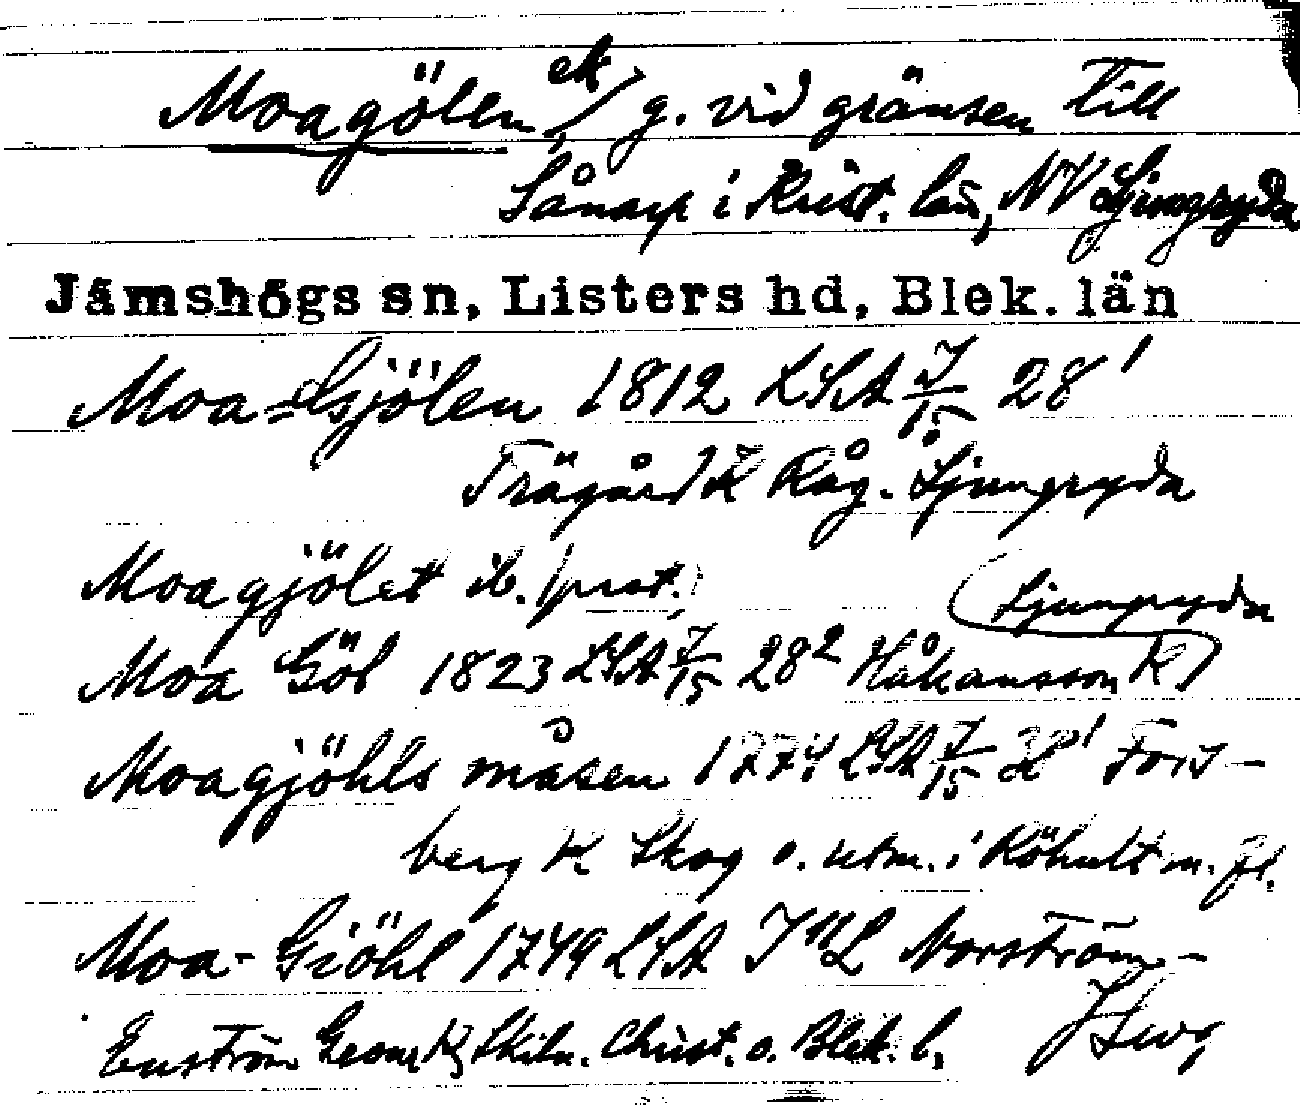 Moagölen, ek/ g. vid gränsen till
Lånarp i Krist. län, NV Ljungryda
Jämshögs sn, Listers hd, Blek. län
Moa-Gjölen 1812 LSA J/15 28¹
Trägård K Råg. Ljungryda
Moagjölet ib. (prot.)
Moa Göl 1823 LSA J/15 28² Håkansson K (Ljungryda)
Moagjöhls måsen 1774 LSA J/15 32¹ Fors-
berg K Skog o. utm. i Röhult m. fl.
Moa-Giöhl 1749 LSA Norström-
Enström Geom K Skiln. Christ. o. Blek. l.